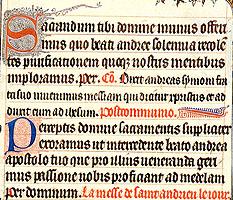 Sacrandum tibi domine munus offeri
mus quo beati andree solennia recolē
tes purificationem quoqȝ nostris mentibus
imploramus. per. Cō. Dixit andreas symoni fra
tri suo inuenimus messiam qui dicitur xpristus et ad
duxit eum ad ihesum. Postcommunio.
Perceptis domine sacramentis suppliciter
exoramus ut intercedente beato andrea
apostolo tuo que pro illius ueneranda geri
mus passione nobis proficiant ad medelam
per dominum. La messe de saint andrieu le iour.